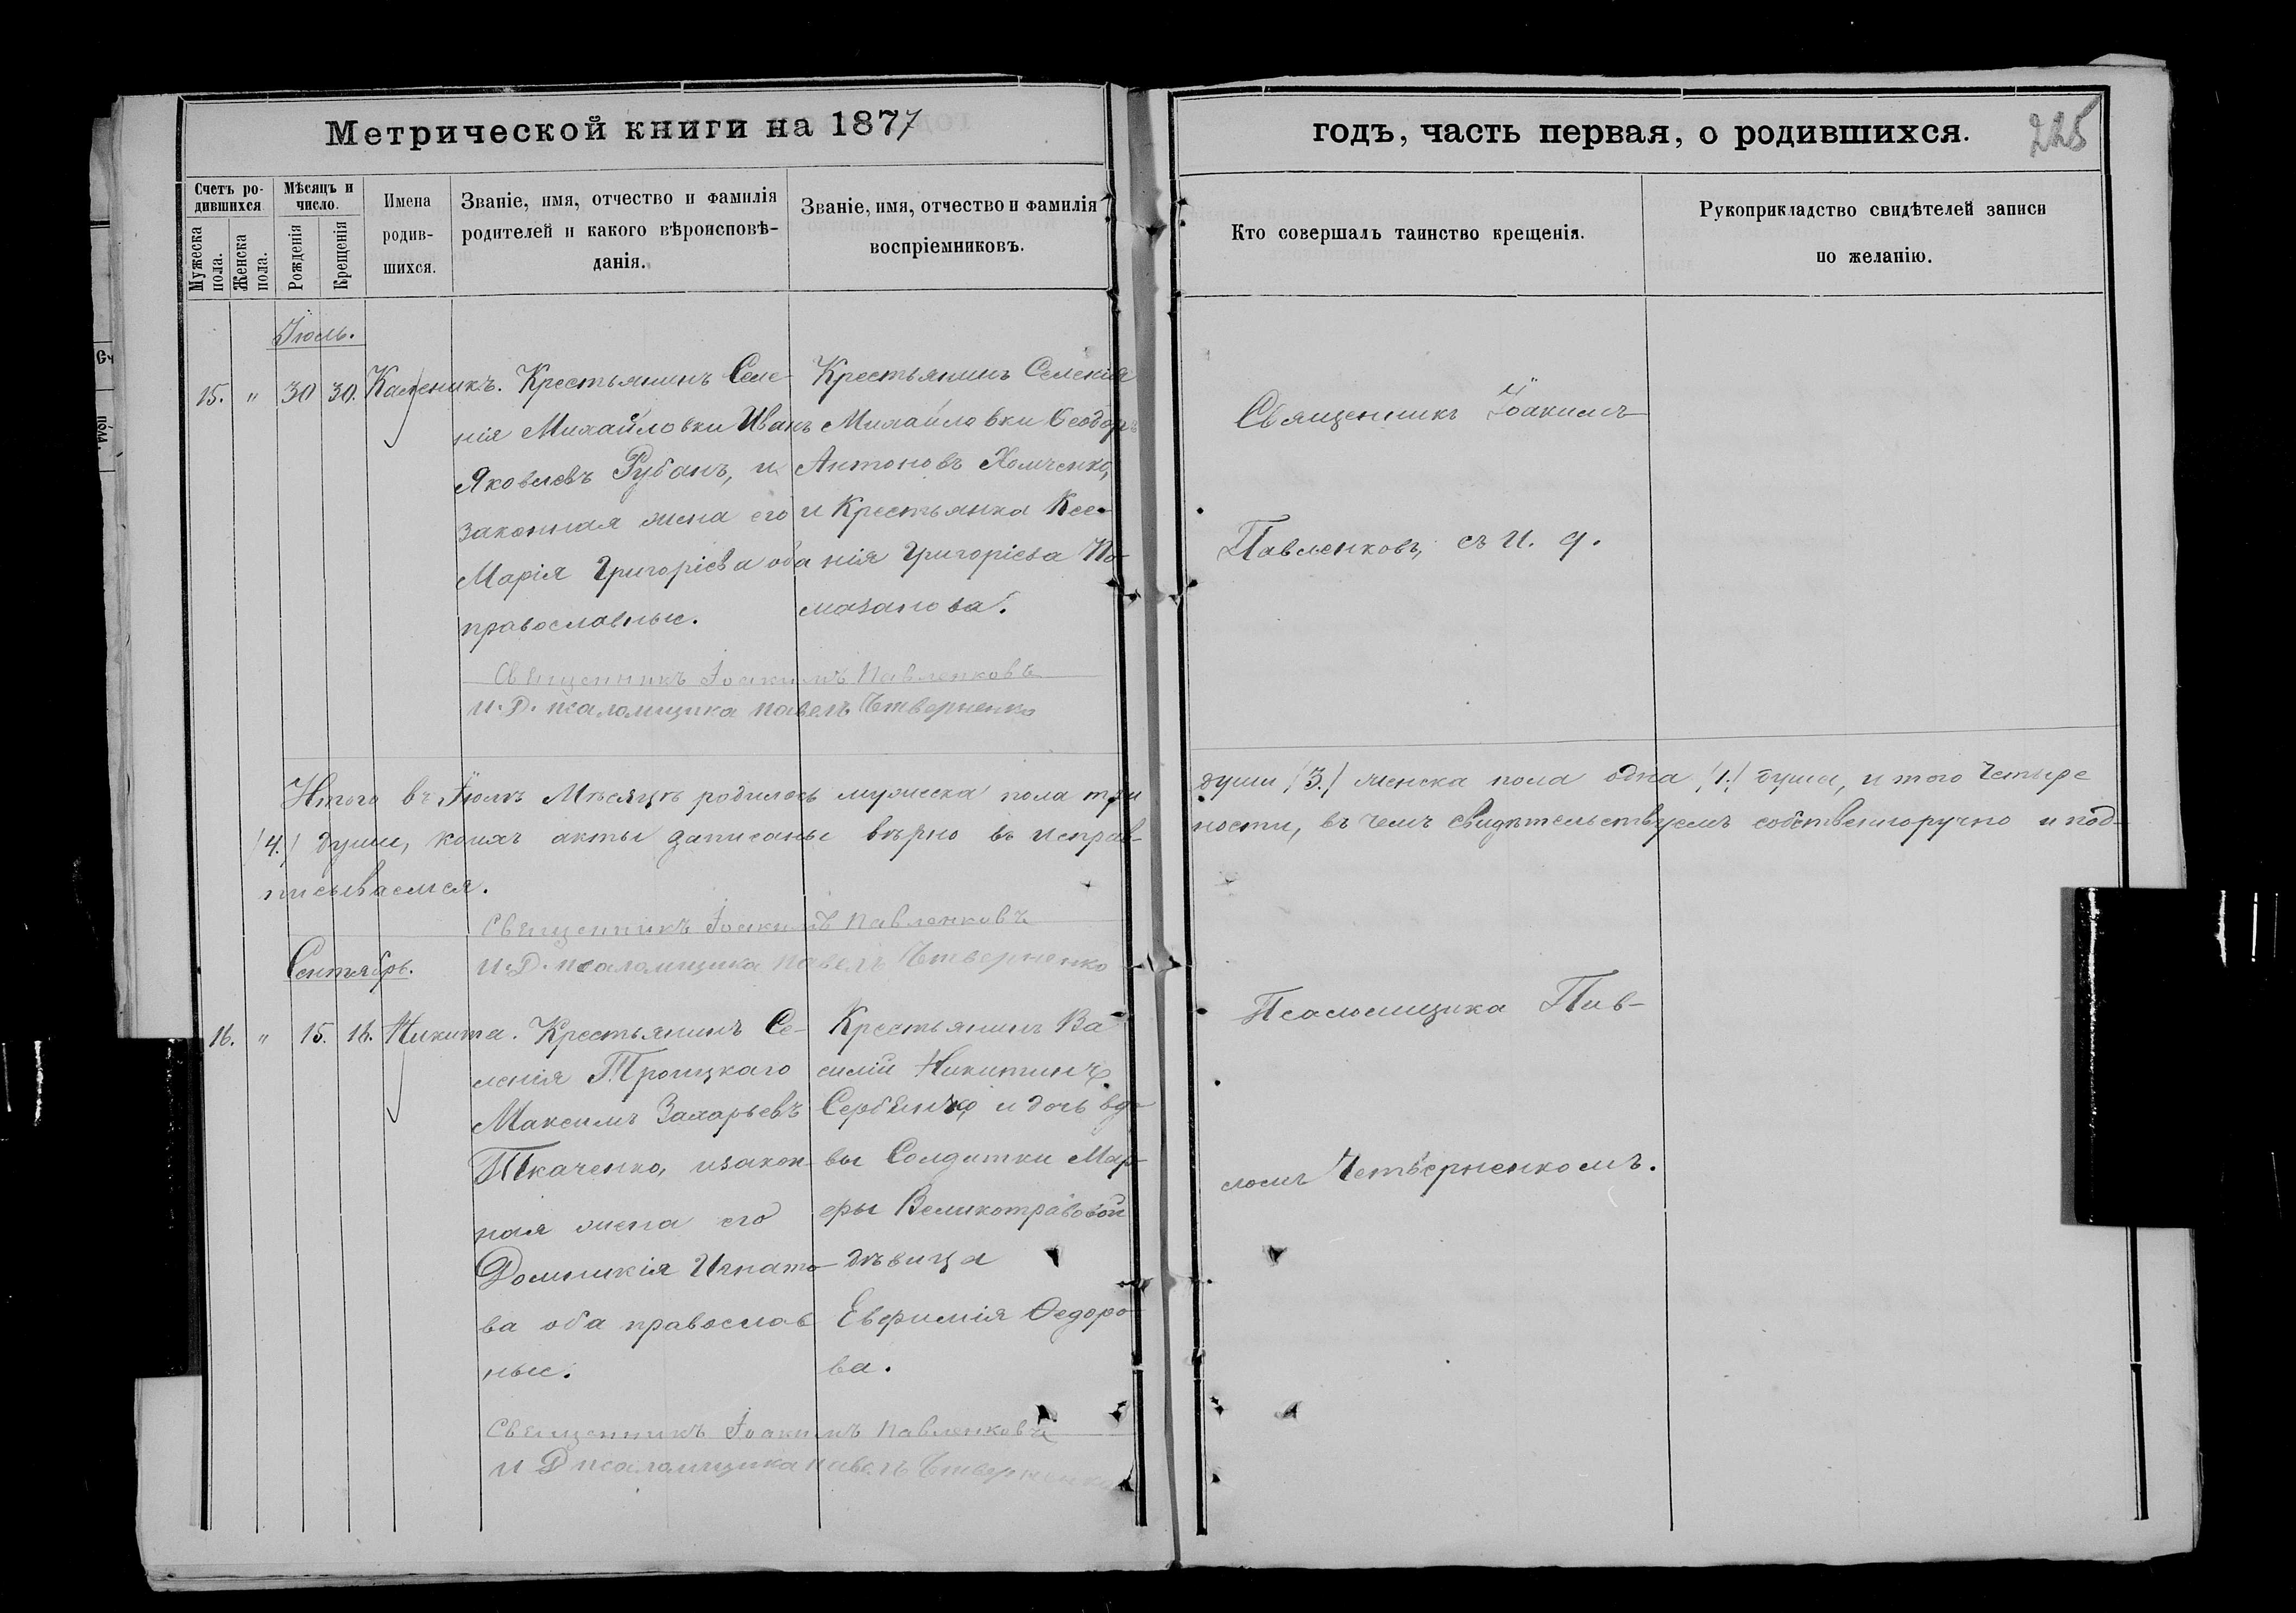 Метрической книги на 1877
годъ, часть первая, о родившихся.
225
Счетъ ро-
дившихся.
Мѣсяцъ и
число.
Мужеска
пола.
Женска
пола.
Рожденія
Крещенія
Имена
родив-
шихся.
Званіе, имя, отчество и фамилія
родителей и какого вѣроисповѣ-
данія.
Званіе, имя, отчество и фамилія
воспріемниковъ.
Кто совершалъ таинство крещенія.
Рукоприкладство свидѣтелей записи
по желанію.
Іюль.
15. " 30 30. Каленикъ.
Крестьянинъ Селе-
нія Михайловки Иванъ
Яковлевъ Рубанъ, и
законная жена его
Марія Григоріева оба
православные.
Крестьянинъ Селенія
Михайловки Ѳеодоръ
Антоновъ Хомченко,
и Крестьянка Ксе-
нія Григоріева По-
мазанова.
Священникъ Іоакимъ
Павленковъ, съ И. д.
Священникъ Іоакимъ Павленковъ
И. Д. псаломщика Павелъ Четверненко
Итого въ Іюлѣ Мѣсяцѣ родилось мужеска пола три
души /3./ женска пола одна /1./ душа, итого четыре
/4./ души, коихъ акты записаны вѣрно въ исправ-
ности, въ чемъ свидѣтельствуемъ собственноручно и под-
писываемся.
Священникъ Іоакимъ Павленковъ
И. Д. псаломщика Павелъ Четверненко
Сентябрь.
16. " 15. 16. Никита.
Крестьянинъ Се-
ленія Троицкаго
Максимъ Захарьевъ
Ткаченко, изакон-
ная жена его
Домникія Игнато-
ва оба православ
ные.
Крестьянинъ Ва-
силій Никитинъ
Сербенко, и дочь вдо-
вы Солдатки Мар-
фы Великотравовой
дѣвица
Евфимія Ѳедоро-
ва.
Псаломщика Пав-
ломъ Четверненкомъ.
Священникъ Іоакимъ Павленковъ
И Д псаломщика Павелъ Четверненко